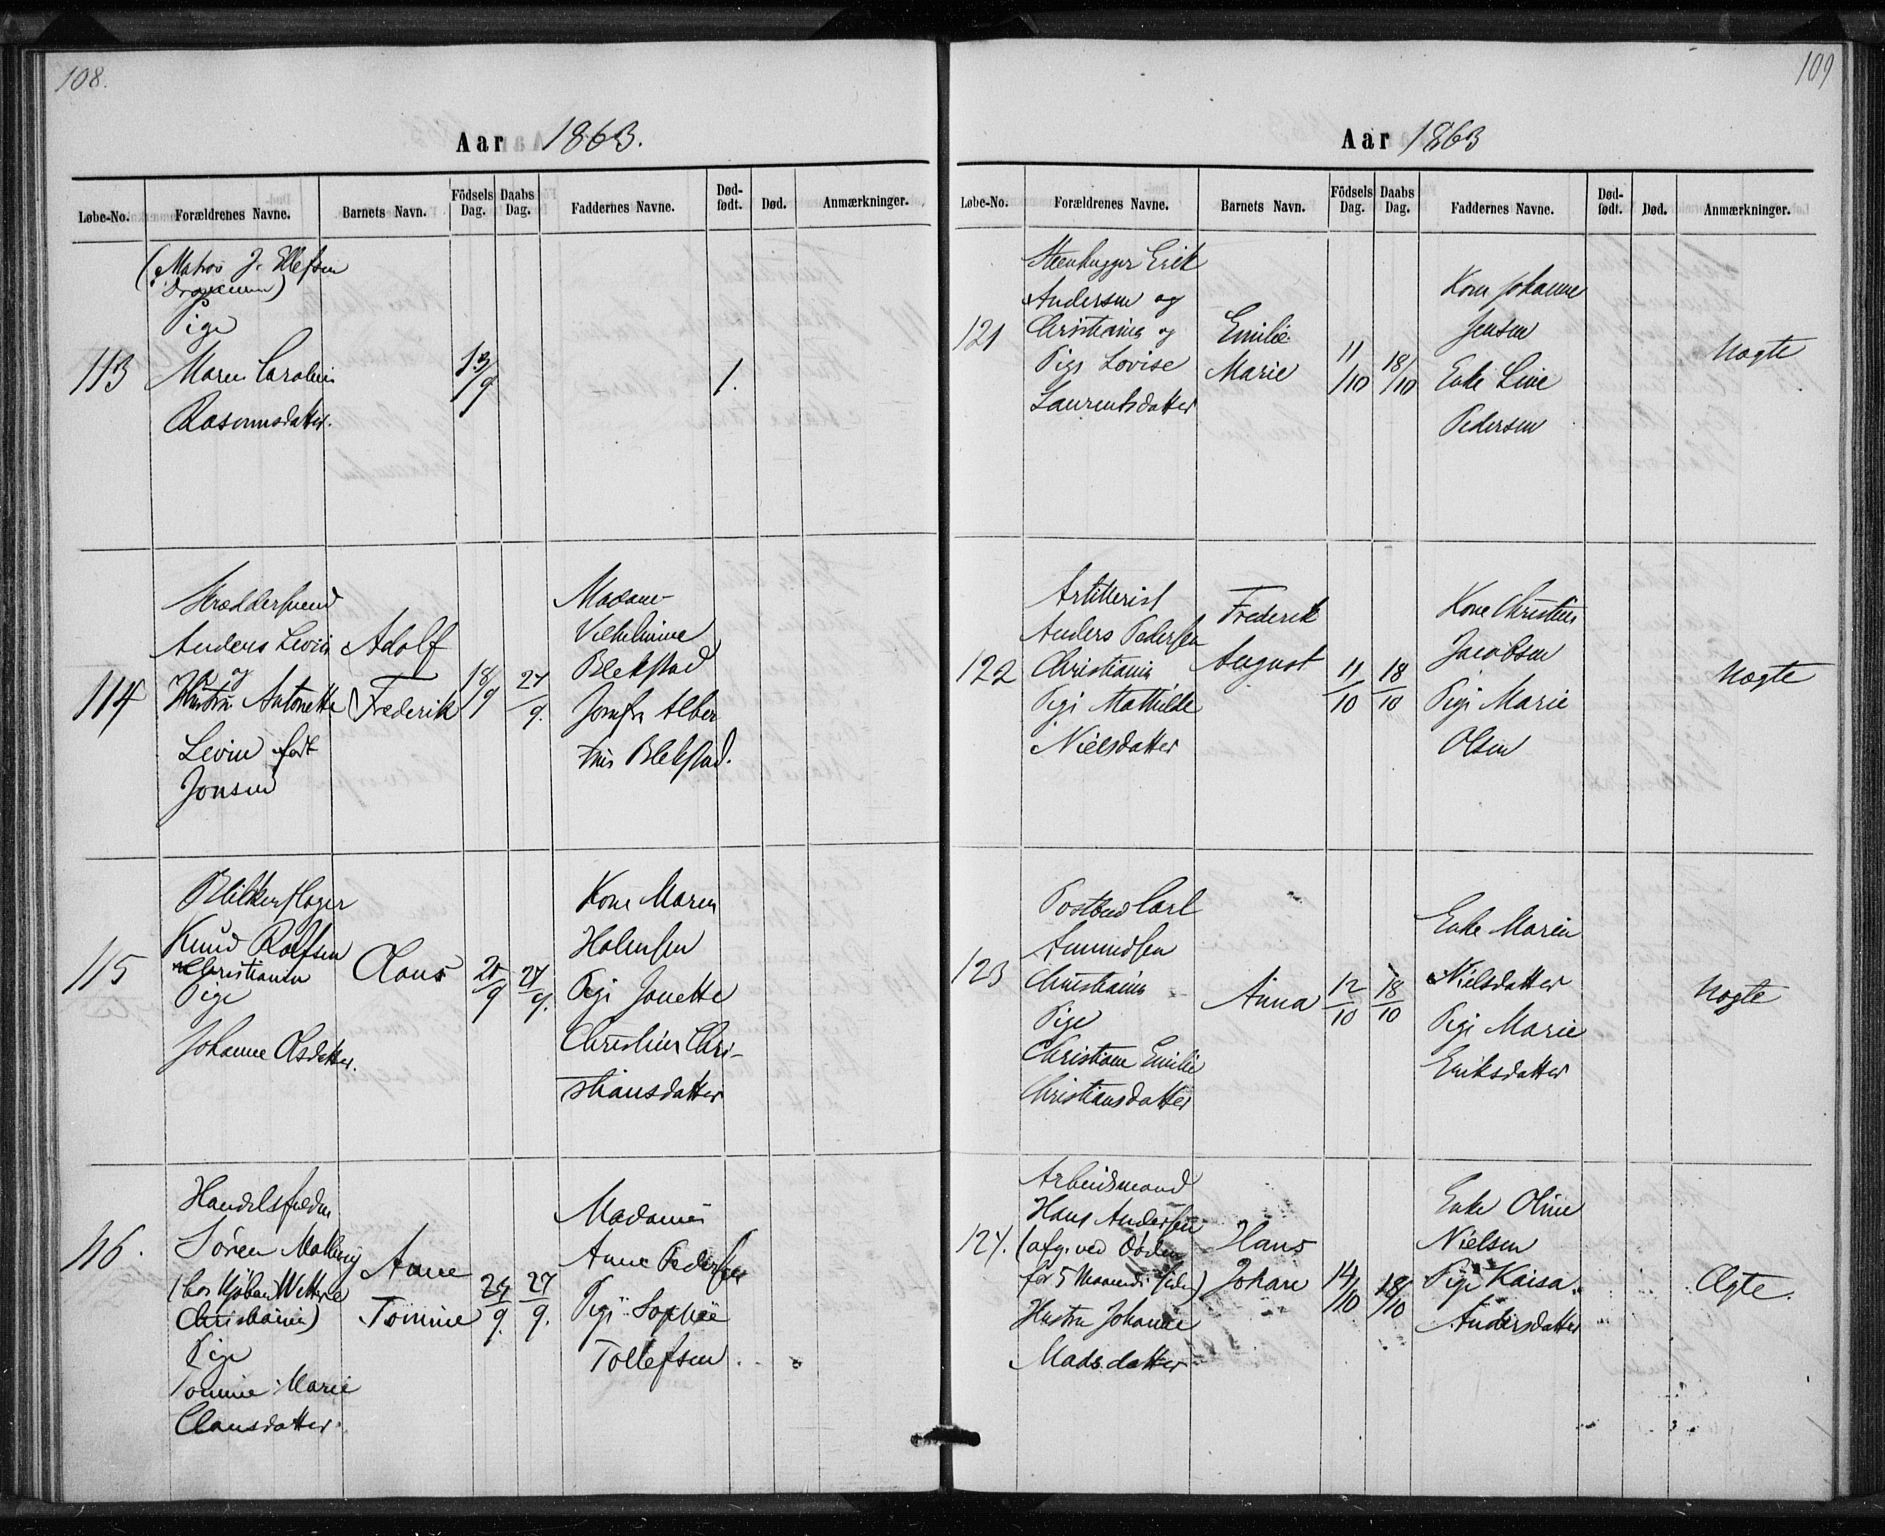 108.
Aar 1863.
Løbe-No. Forældrenes Navne. Barnets Navn. Födsels Dag. Daabs Dag. Faddernes Navne. Død-født. Død. Anmærkninger.
113
(Matros J. Ellefsen
Drøbak)
Pige
Maren Caroline
Rasmusdatter.
13/9
1.
114
Skræddersvend
Anders Levin
og
Hustru Antonette
Levin født
Jonsen
Adolf
Frederik
18/9
27/9.
Madame
Vilhelmine
Blekstad
Jomfr Alber
tine Blekstad.
115
Blikkenslager
Knud Rolfsen
Christiania
Pige
Johanne Olsdatter.
Claus
21/9
27/9.
Kone Maren
Halvorsen
Pige Jonette
Christine Chri-
stiansdatter
116.
Handelsfuldm
Søren Malling
(hos Kjøbm Wetterle
Christiania)
Pige
Tomine Marie
Clausdatter.
Anne
Tomine
24/9.
27/9.
Madame
Anne Pedersen
Pige Sophie
Tollefsen
109
Aar 1863
Løbe-No. Forældrenes Navne. Barnets Navn. Födsels Dag. Daabs Dag. Faddernes Navne. Død-födt. Død. Anmærkninger.
121
Steenhugger Erik
Andersen og
Christiania og
Pige Lovise
Laurentsdatter
Emilie
Marie
11/10
18/10
Kone Johanne
Jensen
Enke Line
Pedersen
Uægte
122
Artillerist
Anders Pedersen
Christiania
Pige Mathilde
Nielsdatter
Frederik
August
11/10
18/10
Kone Christine
Jacobsen
Pige Marie
Olsen
Uægte
123
Postbud Carl
Amundsen
Christiania
Pige
Christiane Emilie
Christiansdatter
Anna
12/10
18/10
Enke Maren
Nielsdatter
Pige Marie
Eriksdatter
Uægte
124.
Arbeidsmand
Hans Andersen
(afg. ved Døden
for 5 Maaneder siden)
Hustru Johanne
Madsdatter
Hans
Johan
14/10
18/10
Enke Oline
Nielsen
Pige Kaisa
Andersdatter
Ægte.